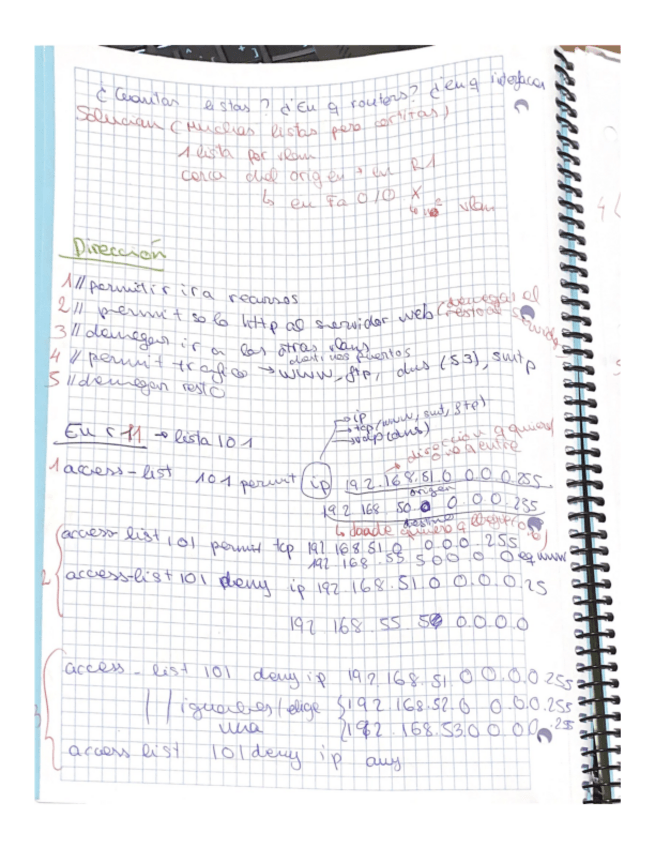 ¿ Cuantas listas? ¿ En q routers? ¿ en q interfaces
Solucion (Muchas listas pero cortitas)
1 lista por vlan
cerca del origen + en R1
↳ en Fa 0/0 X
vlan
Dirección
1 // permitir ir a recursos
2 // permit solo http al servidor web (denegar el resto al
3 // denegar ir a las otras vlans
4 // permit trafico → www, ftp, dns (53), smtp
destinos puertos
5 // denegar resto
→ ip
→ tcp (www, smt, ftp)
→ udp (dns)
En r 11 → lista 101
1 access-list 101 permit ip 192.168.51.0 0.0.0.255
origen
192 168 50.0 0.0.0.255
destino
↳ donde quiero q
2 access-list 101 permit tcp 192 168 51.0 0.0.0.255
192.168.55 50 0.0.0 0 eq www
access-list 101 deny ip 192.168.51.0 0.0.0.25
192 168 55 50 0.0.0.0
3 access-list 101 deny ip 192 168.51.0 0.0.0.255
192 168.52.0 0.0.0.255
una 192.168.53.0 0.0.0.255
access list 101 deny ip any